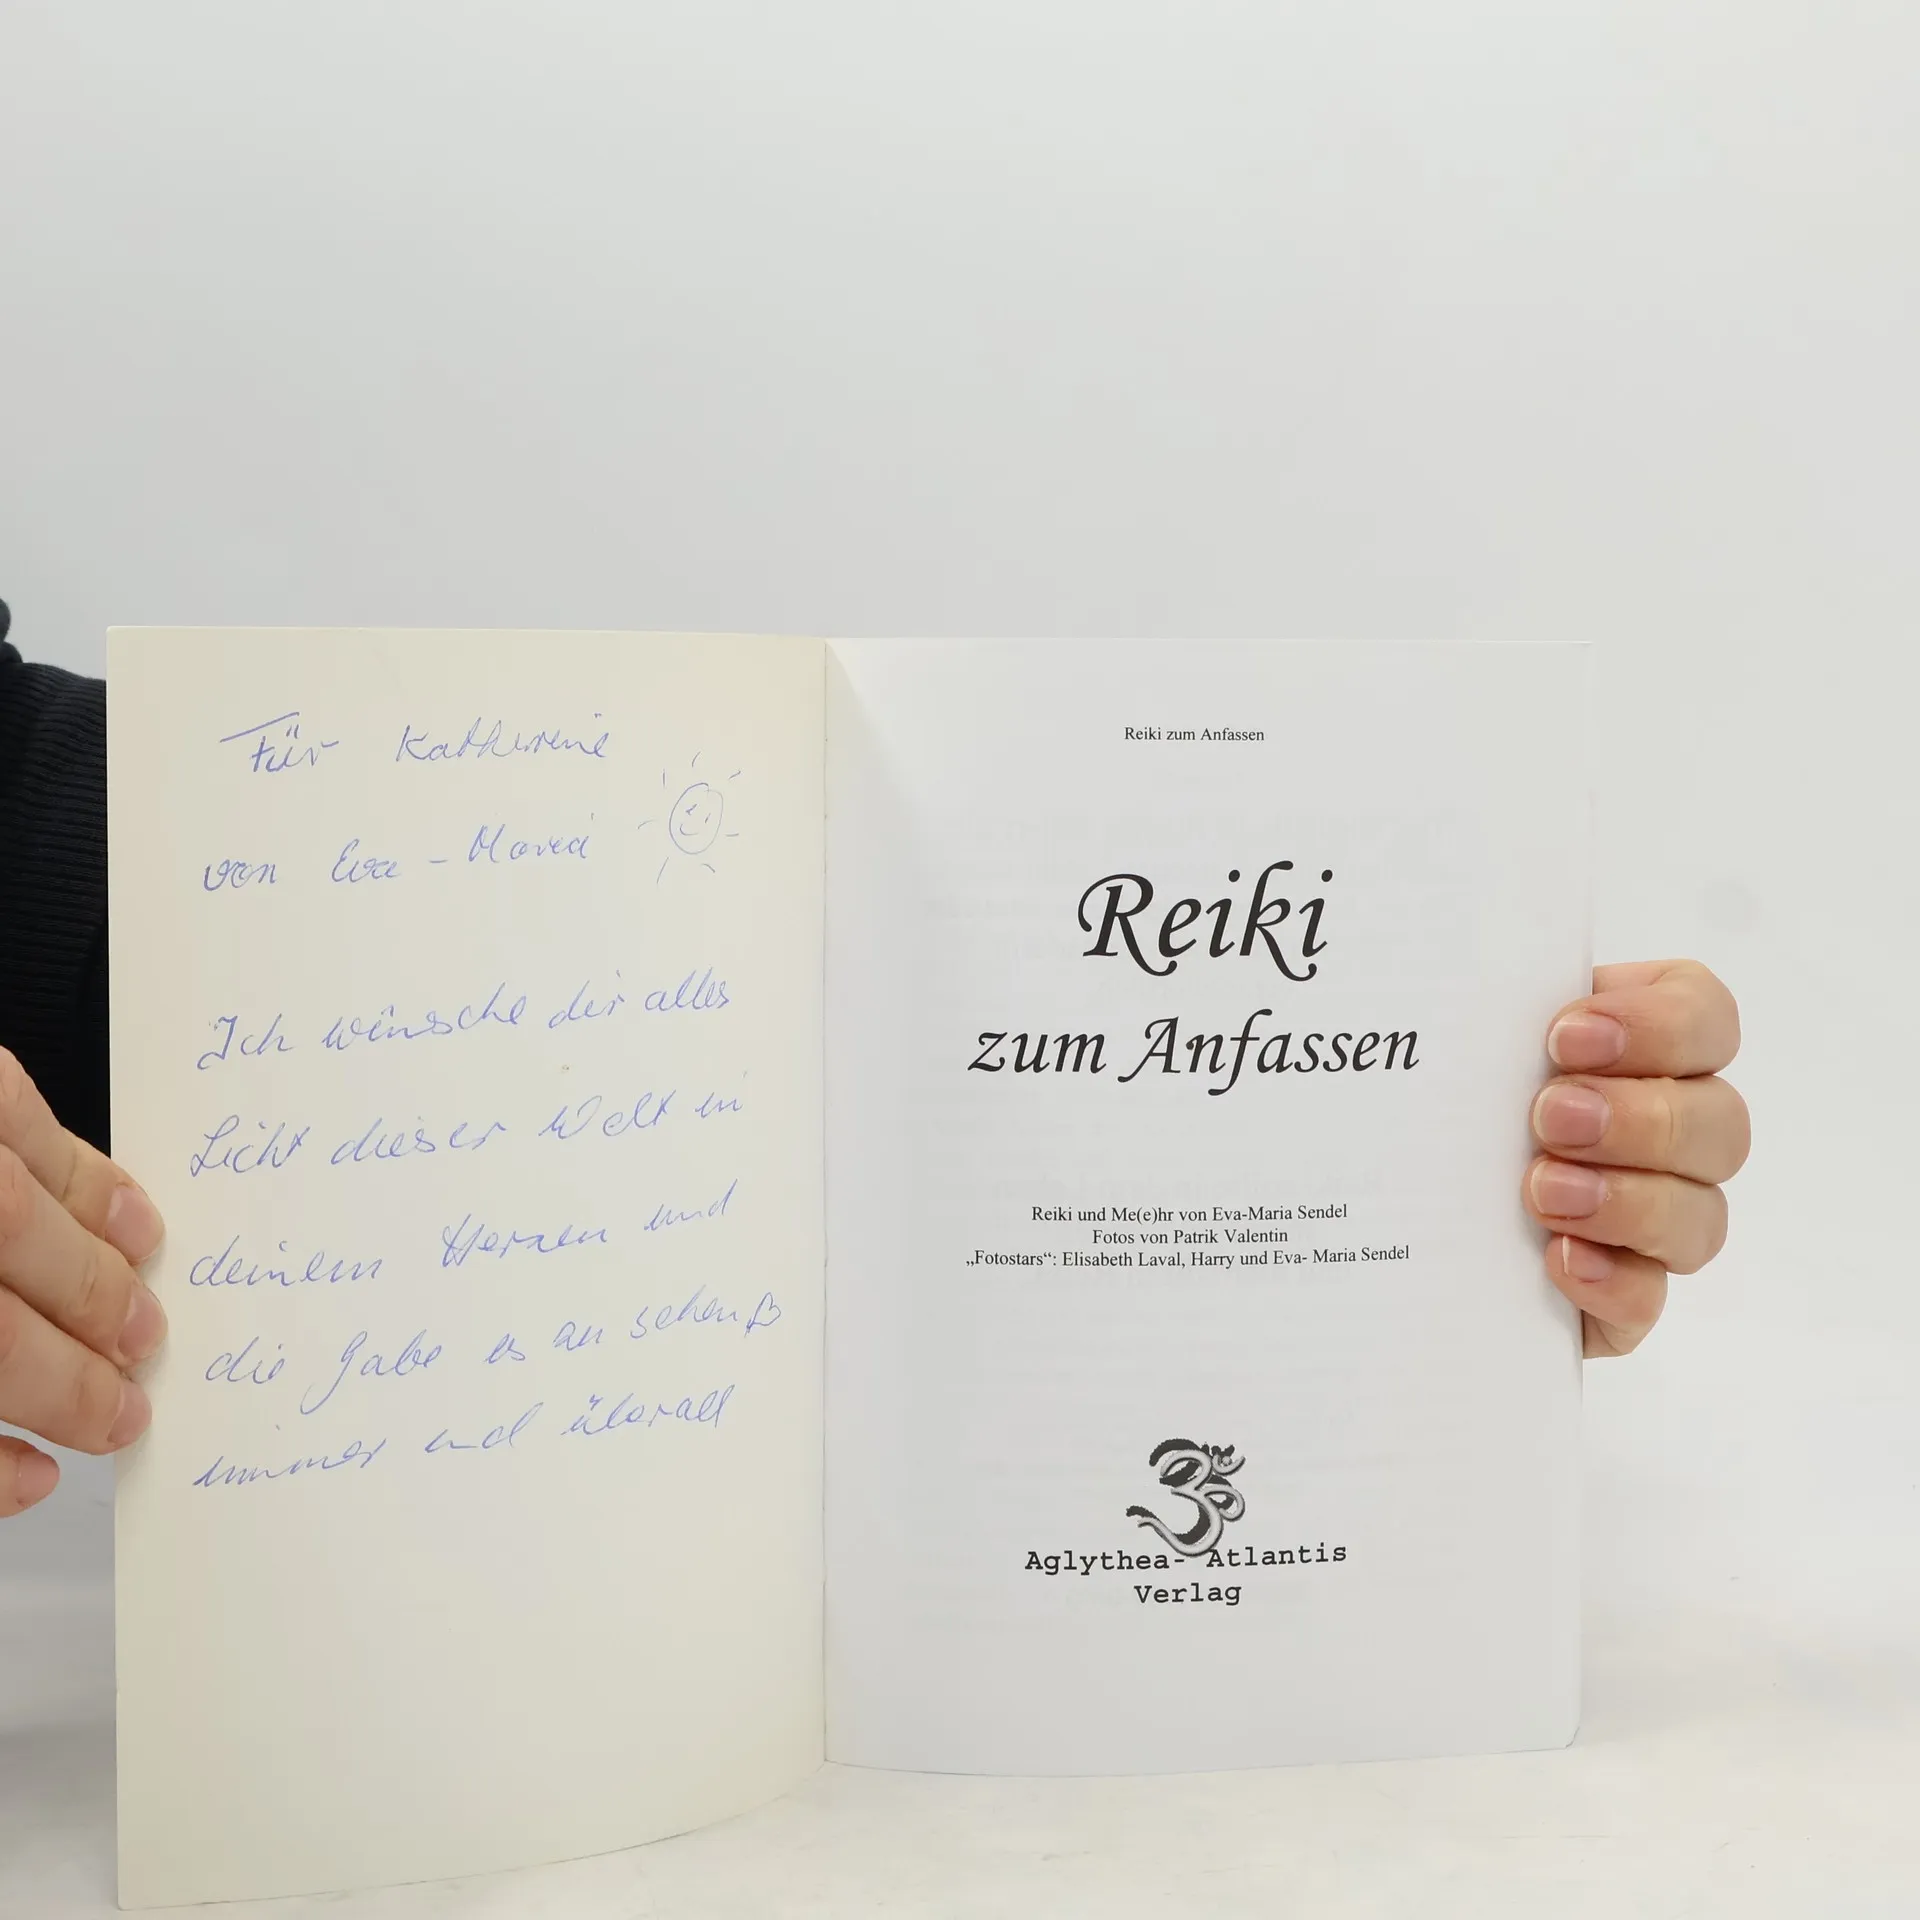 Für Katherine
von Eva-Maria
Ich wünsche dir alles
Licht dieser Welt in
deinem Herzen und
die Gabe es zu sehen
immer und überall
Reiki zum Anfassen
Reiki
zum Anfassen
Reiki und Me(e)hr von Eva-Maria Sendel
Fotos von Patrik Valentin
„Fotostars“: Elisabeth Laval, Harry und Eva- Maria Sendel
ॐ
Aglythea- Atlantis
Verlag